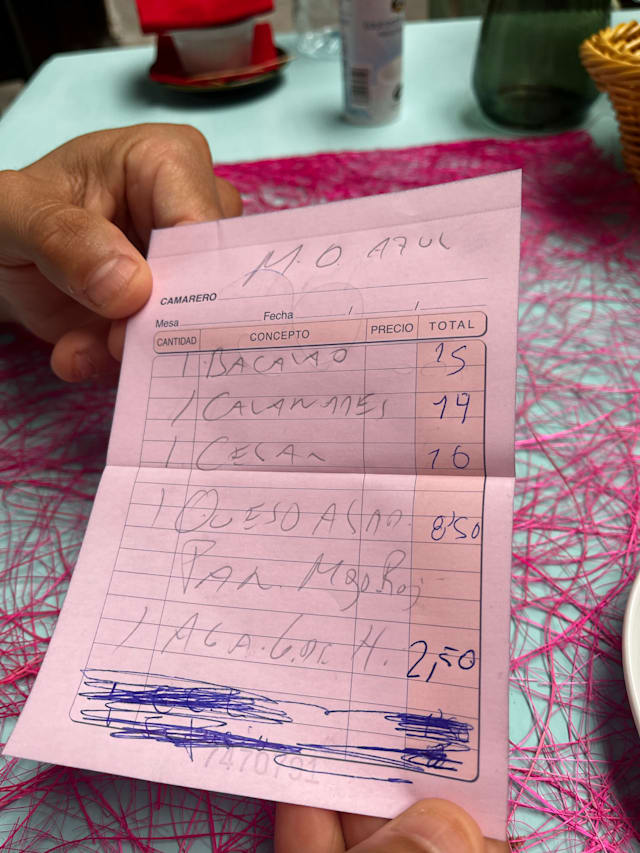 M.O AZUL
CAMARERO
Mesa Fecha / /
CANTIDAD CONCEPTO PRECIO TOTAL
1 BACALAO 15
1 CALAMARES 19
1 CESAR 16
1 QUESO ASAD. 8'50
PAN. Mgo Roj
1 AGA. G. DE H. 2,50
7470791